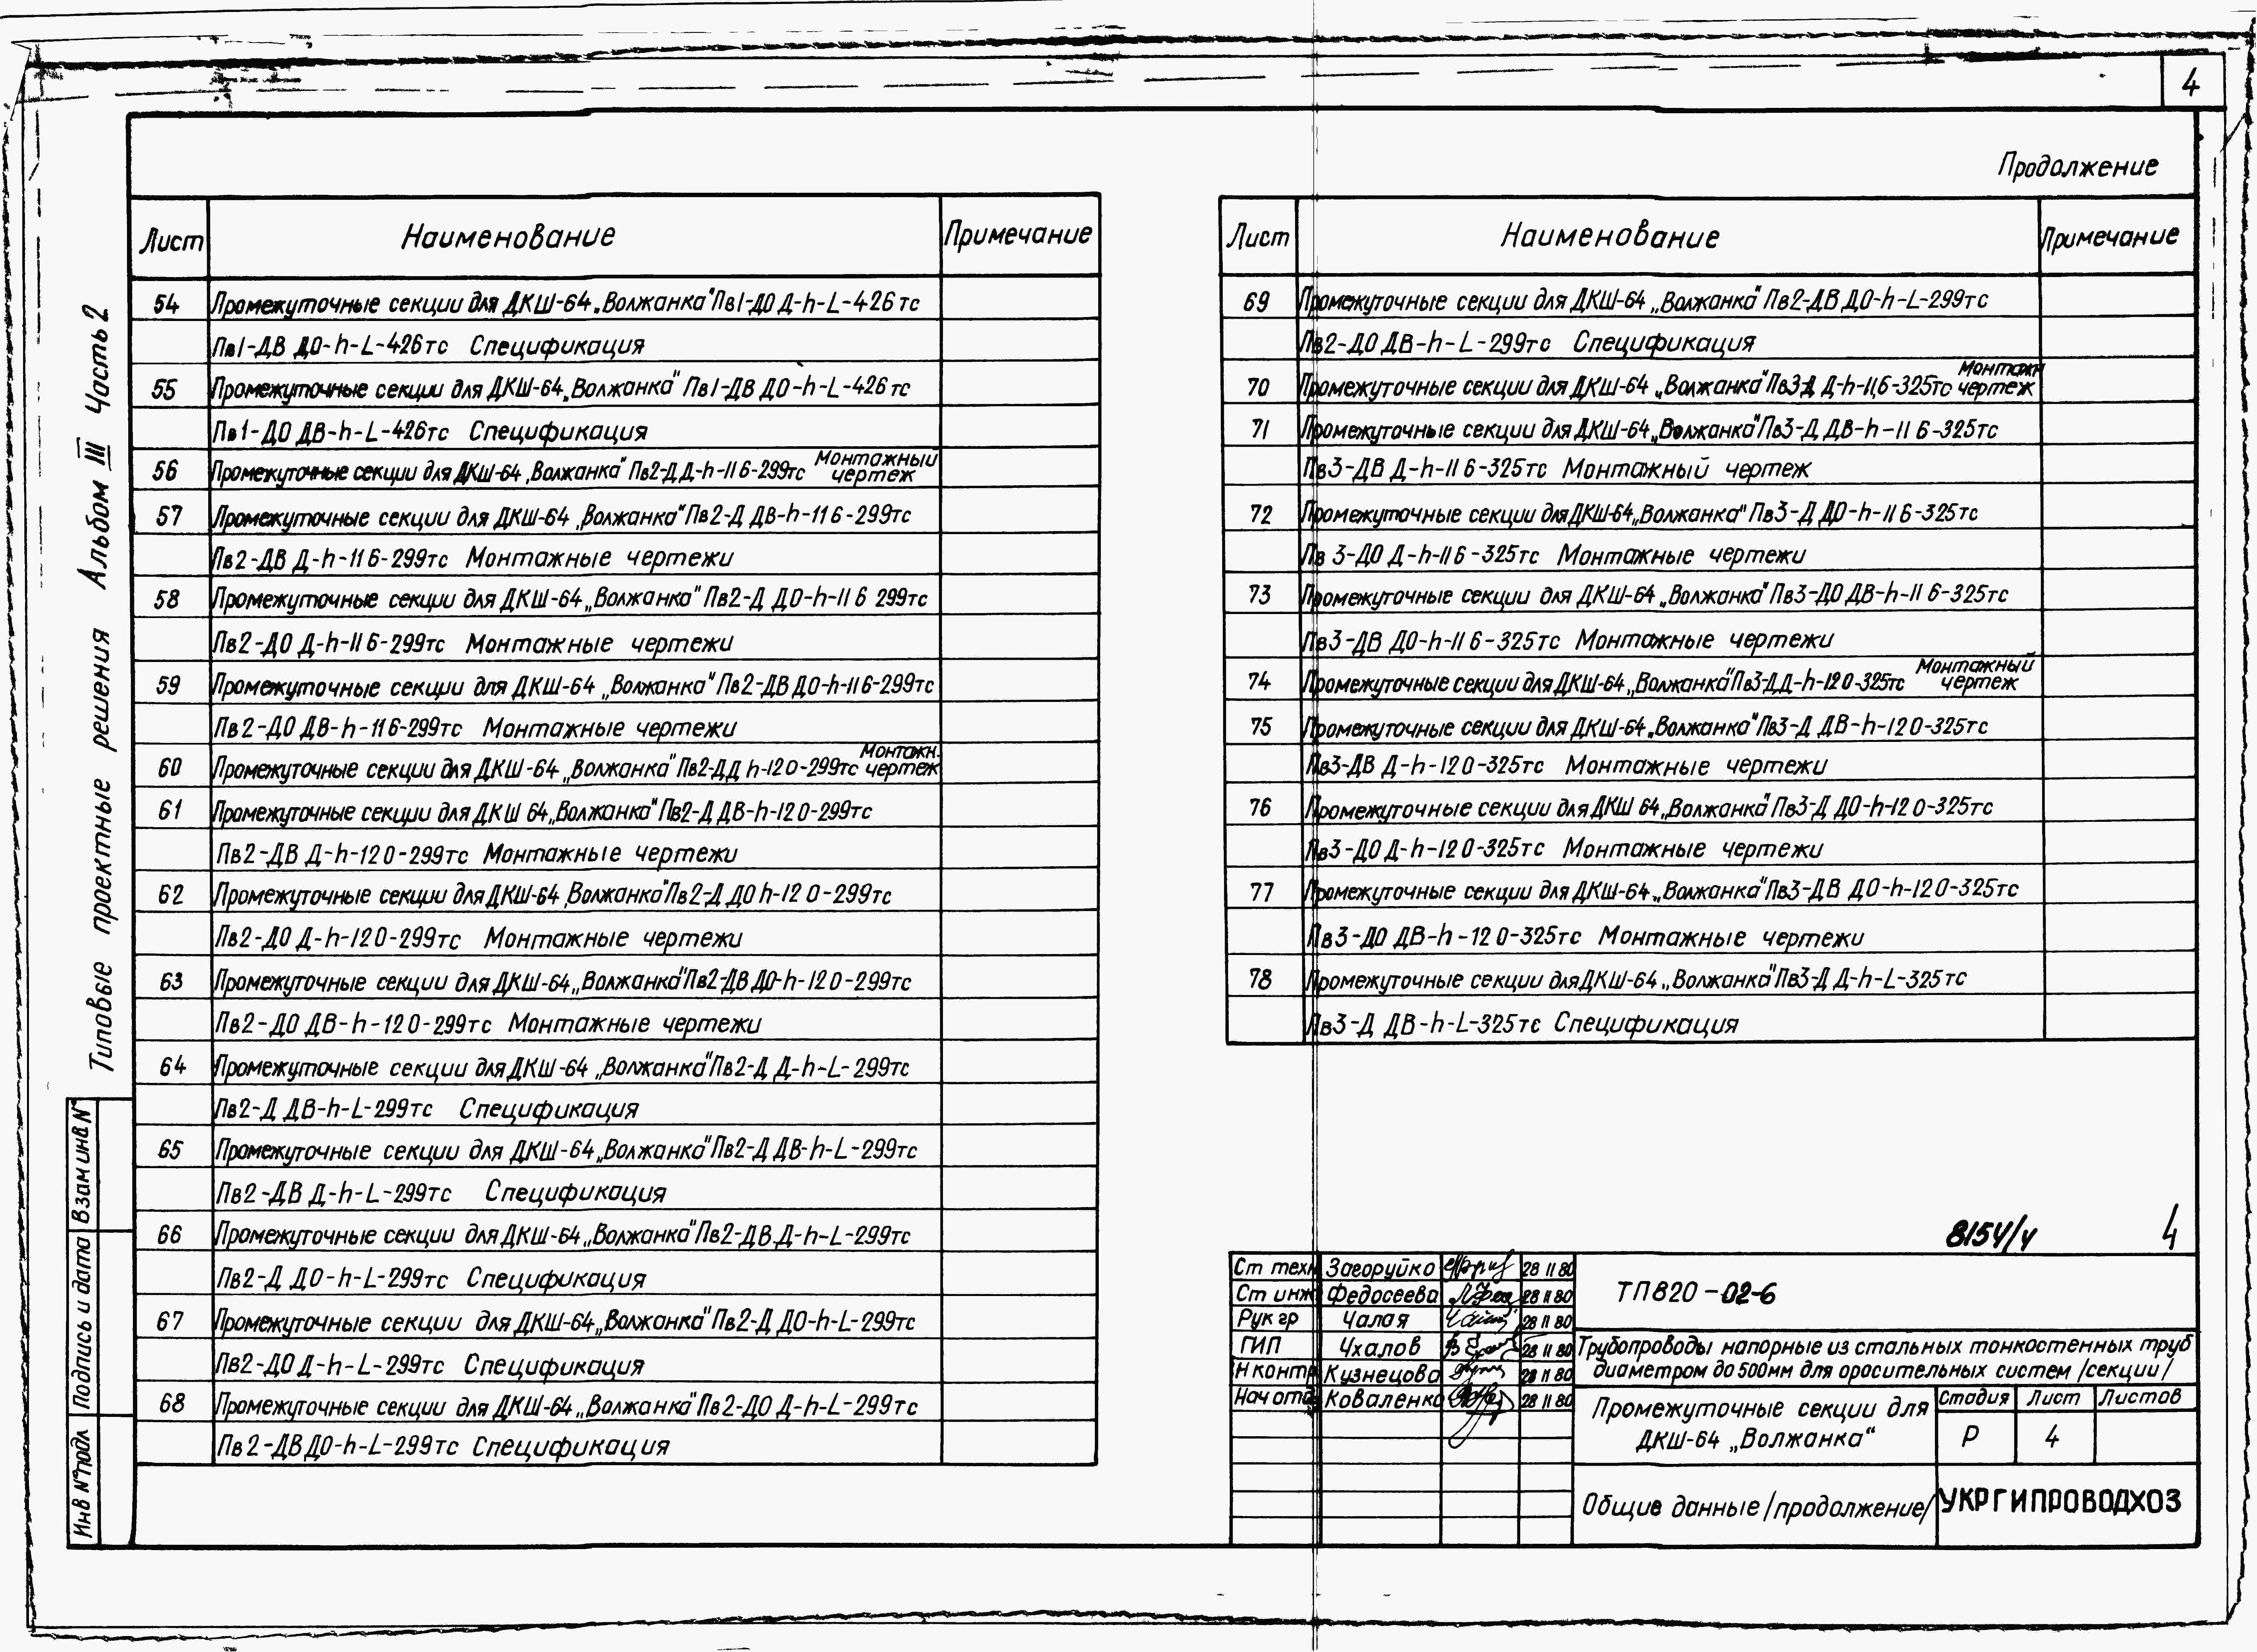 4
Продолжение
Типовые проектные решения Альбом III Часть 2
Лист Наименование Примечание
54 Промежуточные секции для ДКШ-64 „Волжанка“ Пв1-ДО Д-h-L-426тс
Пв1-ДВ ДО-h-L-426тс Спецификация
55 Промежуточные секции для ДКШ-64 „Волжанка“ Пв1-ДВ ДО-h-L-426тс
Пв1-ДО ДВ-h-L-426тс Спецификация
56 Промежуточные секции для ДКШ-64 „Волжанка“ Пв2-Д Д-h-11 6-299тс Монтажный чертеж
57 Промежуточные секции для ДКШ-64 „Волжанка“ Пв2-Д ДВ-h-11 6-299тс
Пв2-ДВ Д-h-11 6-299тс Монтажные чертежи
58 Промежуточные секции для ДКШ-64 „Волжанка“ Пв2-Д ДО-h-11 6 299тс
Пв2-ДО Д-h-11 6-299тс Монтажные чертежи
59 Промежуточные секции для ДКШ-64 „Волжанка“ Пв2-ДВ ДО-h-11 6-299тс
Пв2-ДО ДВ-h-11 6-299тс Монтажные чертежи
60 Промежуточные секции для ДКШ-64 „Волжанка“ Пв2-Д Д h-12 0-299тс Монтажн. чертеж
61 Промежуточные секции для ДКШ 64 „Волжанка“ Пв2-Д ДВ-h-12 0-299тс
Пв2-ДВ Д-h-12 0-299тс Монтажные чертежи
62 Промежуточные секции для ДКШ-64 „Волжанка“ Пв2-Д ДО h-12 0-299тс
Пв2-ДО Д-h-12 0-299тс Монтажные чертежи
63 Промежуточные секции для ДКШ-64 „Волжанка“ Пв2-ДВ ДО-h-12 0-299тс
Пв2-ДО ДВ-h-12 0-299тс Монтажные чертежи
64 Промежуточные секции для ДКШ-64 „Волжанка“ Пв2-Д Д-h-L-299тс
Пв2-Д ДВ-h-L-299тс Спецификация
65 Промежуточные секции для ДКШ-64 „Волжанка“ Пв2-Д ДВ-h-L-299тс
Пв2-ДВ Д-h-L-299тс Спецификация
66 Промежуточные секции для ДКШ-64 „Волжанка“ Пв2-ДВ Д-h-L-299тс
Пв2-Д ДО-h-L-299тс Спецификация
67 Промежуточные секции для ДКШ-64 „Волжанка“ Пв2-Д ДО-h-L-299тс
Пв2-ДО Д-h-L-299тс Спецификация
68 Промежуточные секции для ДКШ-64 „Волжанка“ Пв2-ДО Д-h-L-299тс
Пв2-ДВ ДО-h-L-299тс Спецификация
Лист Наименование Примечание
69 Промежуточные секции для ДКШ-64 „Волжанка“ Пв2-ДВ ДО-h-L-299тс
Пв2-ДО ДВ-h-L-299тс Спецификация
70 Промежуточные секции для ДКШ-64 „Волжанка“ Пв3-Д Д-h-11,6-325тс Монтажн чертеж
71 Промежуточные секции для ДКШ-64 „Волжанка“ Пв3-Д ДВ-h-11 6-325тс
Пв3-ДВ Д-h-11 6-325тс Монтажный чертеж
72 Промежуточные секции для ДКШ-64 „Волжанка“ Пв3-Д ДО-h-11 6-325тс
Пв 3-ДО Д-h-11 6-325тс Монтажные чертежи
73 Промежуточные секции для ДКШ-64 „Волжанка“ Пв3-ДО ДВ-h-11 6-325тс
Пв3-ДВ ДО-h-11 6-325тс Монтажные чертежи
74 Промежуточные секции для ДКШ-64 „Волжанка“ Пв3-Д Д-h-12 0-325тс Монтажный чертеж
75 Промежуточные секции для ДКШ-64 „Волжанка“ Пв3-Д ДВ-h-12 0-325тс
Пв3-ДВ Д-h-12 0-325тс Монтажные чертежи
76 Промежуточные секции для ДКШ 64 „Волжанка“ Пв3-Д ДО-h-12 0-325тс
Пв3-ДО Д-h-12 0-325тс Монтажные чертежи
77 Промежуточные секции для ДКШ-64 „Волжанка“ Пв3-ДВ ДО-h-12 0-325тс
Пв3-ДО ДВ-h-12 0-325тс Монтажные чертежи
78 Промежуточные секции для ДКШ-64 „Волжанка“ Пв3-Д Д-h-L-325тс
Пв3-Д ДВ-h-L-325тс Спецификация
8154/4 4
Ст техн Загоруйко 28 11 80
Ст инж Федосеева 28 11 80
Рук гр Чалая 28 11 80
ГИП Чхалов 28 11 80
Н контр Кузнецова 28 11 80
Нач отд Коваленко 28 11 80
ТП820-02-6
Трубопроводы напорные из стальных тонкостенных труб
диаметром до 500мм для оросительных систем /секции/
Промежуточные секции для
ДКШ-64 „Волжанка“
Стадия Лист Листов
Р 4
Общие данные /продолжение/
УКРГИПРОВОДХОЗ
Взам инв N
Подпись и дата
Инв N подл